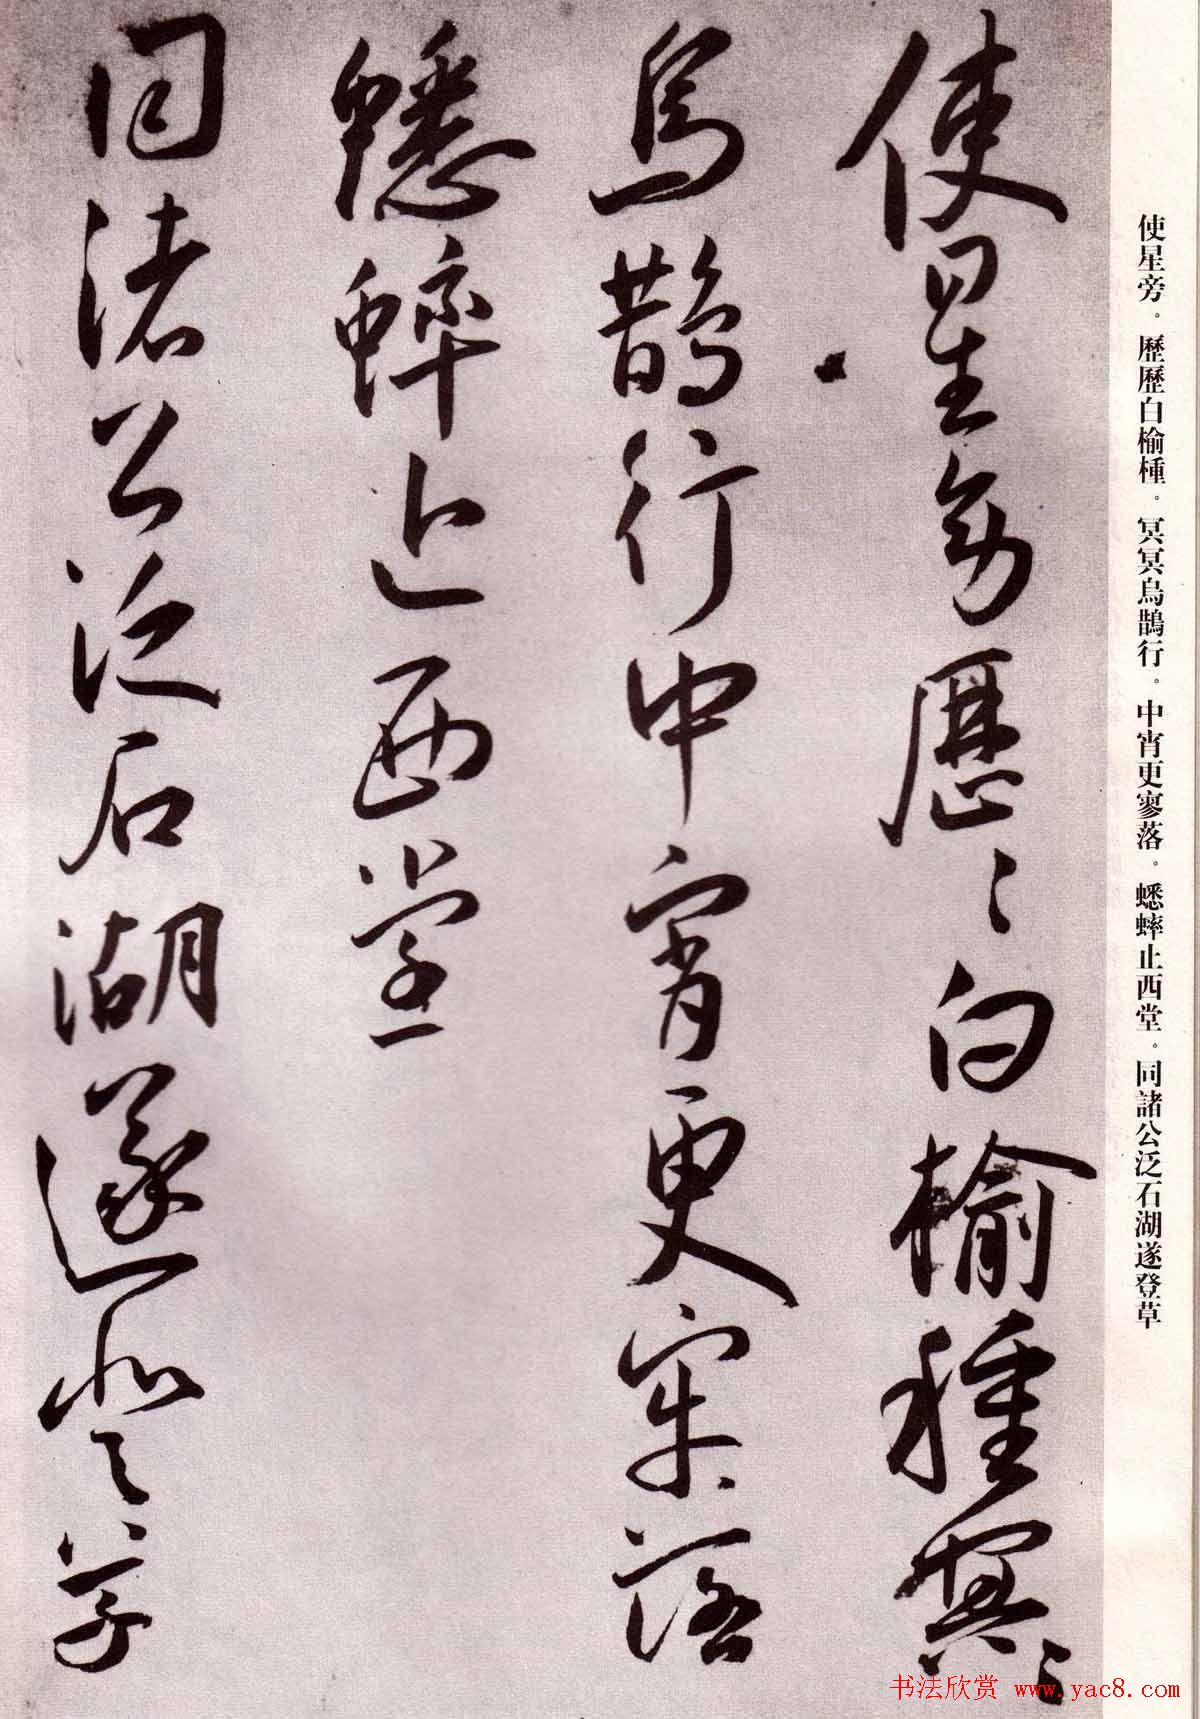 使星旁。歷歷白榆種。冥冥烏鵲行。中宵更寥落。蟋蟀止西堂。同諸公泛石湖遂登草
使星旁歷〻白榆種冥〻
烏鵲行中宵更寥落
蟋蟀止西堂
同諸公泛石湖遂登草
书法欣赏 www.yac8.com